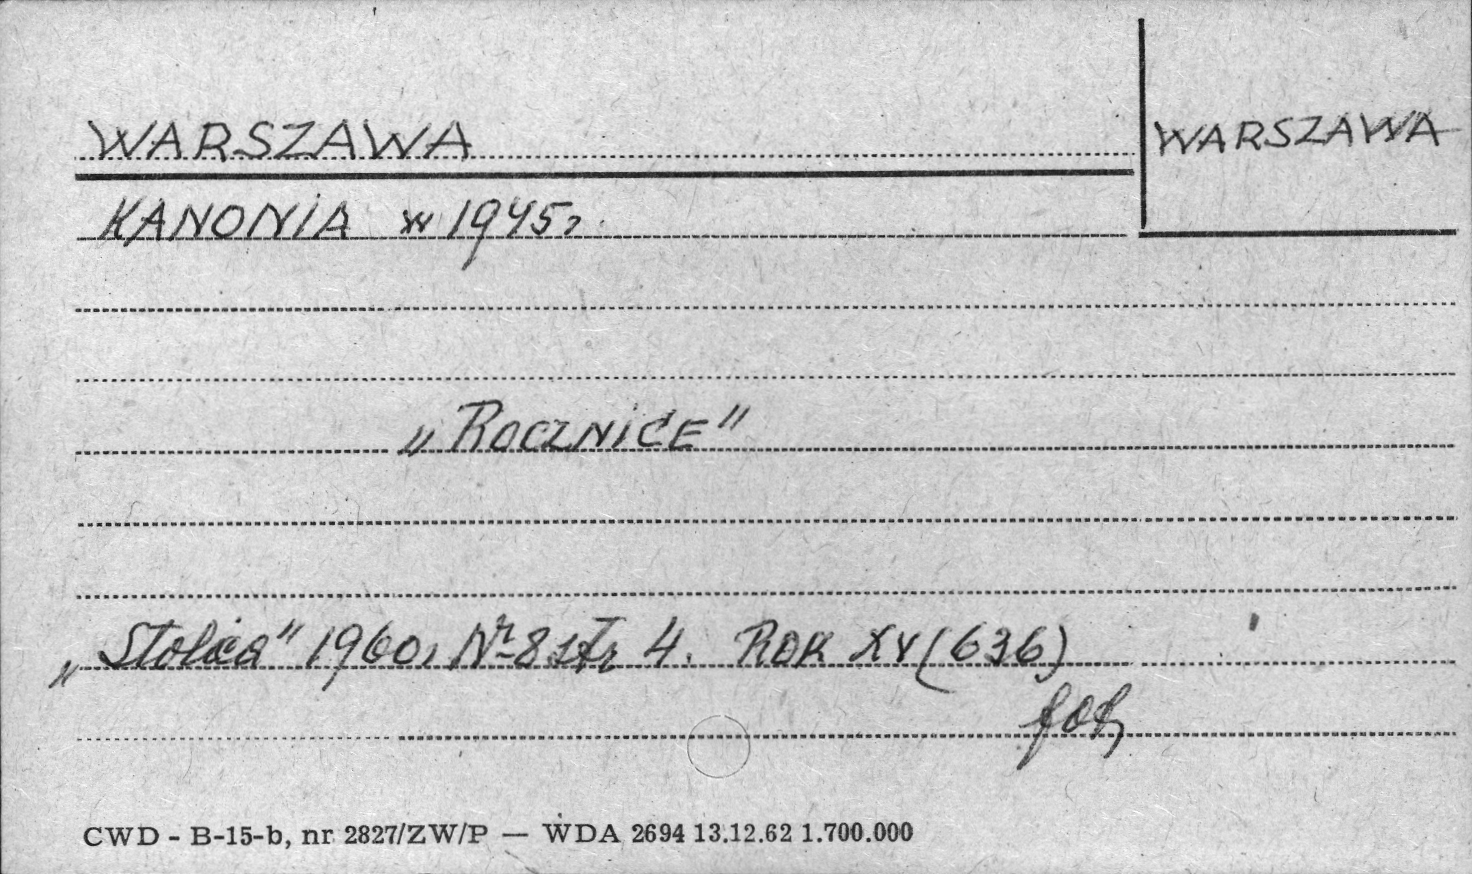 WARSZAWA
WARSZAWA
KANONIA w 1945r
„ROCZNICE”
„Stolica” 1960, Nr 8 str 4. ROK XV (636)
fot
CWD - B-15-b, nr 2827/ZW/P — WDA 2694 13.12.62 1.700.000